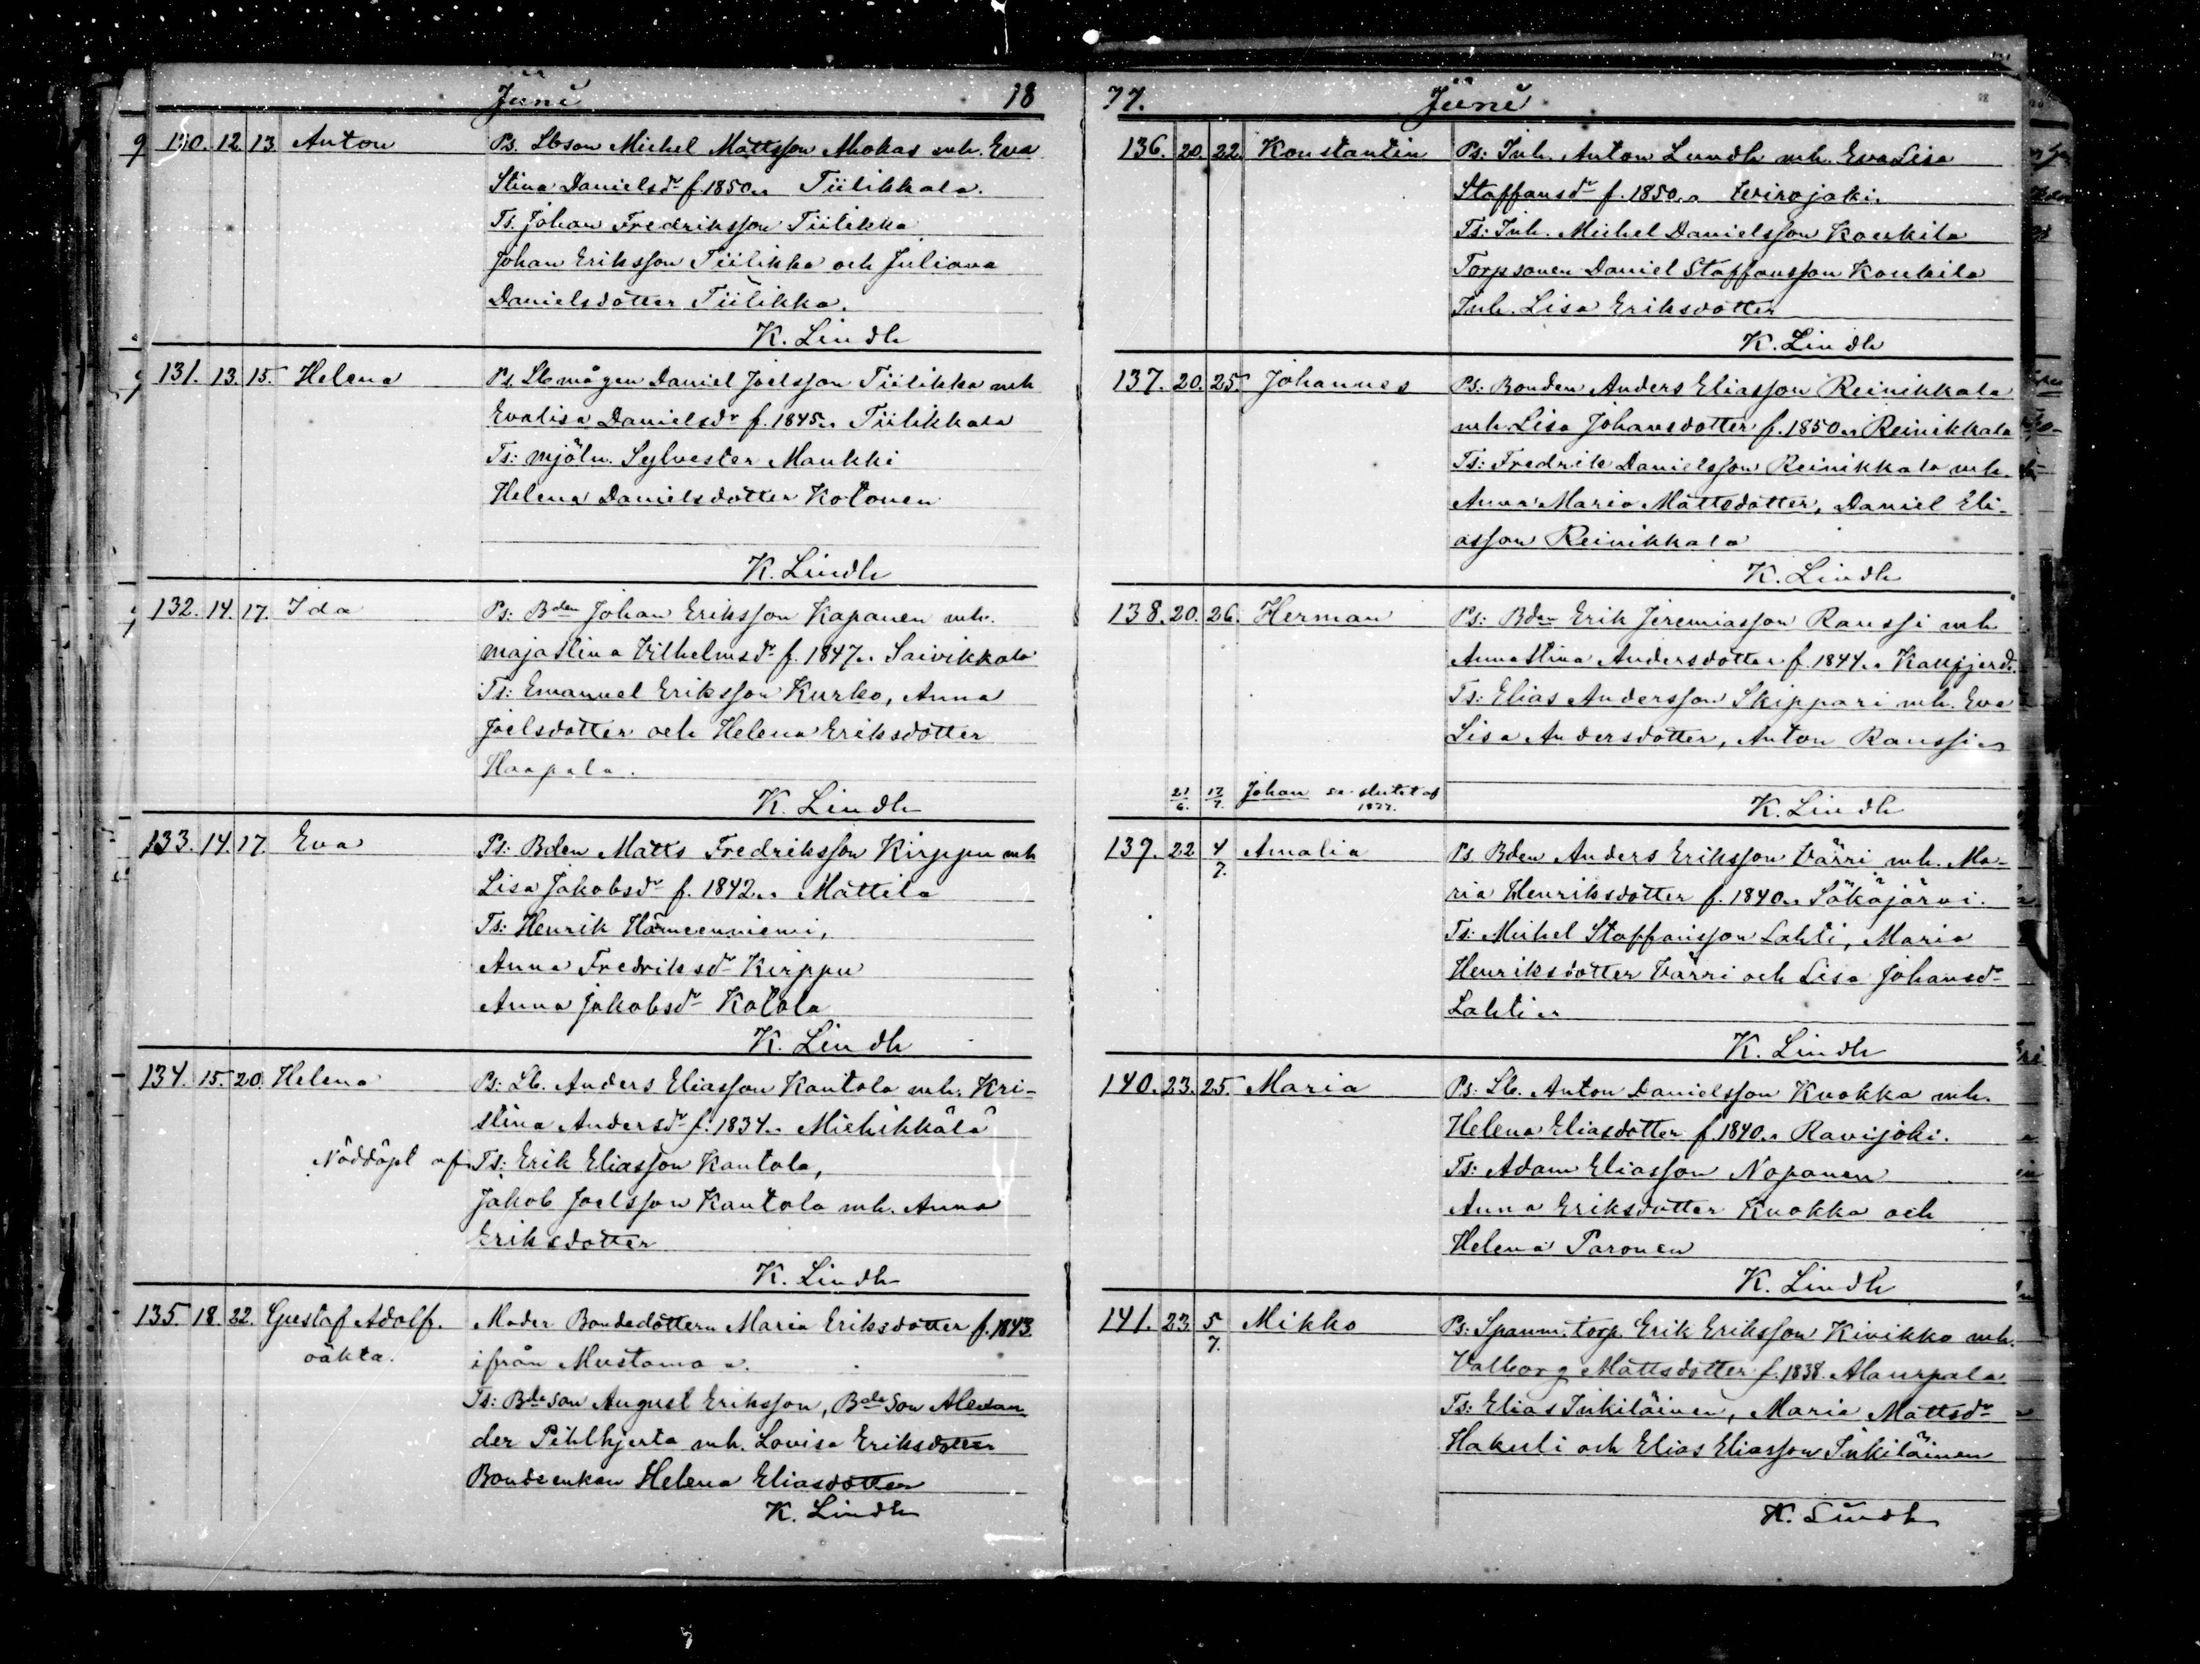 Juni 18
130. 12. 13. Anton Ps. Lbson Michel Mattsson Mokas mh. Eva
Stina Danielsdr f. 1850. Tiilikkala.
Ts. Johan Fredriksson Tiilikka
Johan Eriksson Tiilikka och Juliana
Danielsdotter Tiilikka.
K. Lindh
131. 13. 15. Helena Ps. Lbmågen Daniel Joelsson Tiilikka mh
Evalisa Danielsdr f. 1845. Tiilikkala
Ts: mjöln. Sylvester Maukki
Helena Danielsdotter Kotonen
K. Lindh
132. 14. 17. Ida Ps: Bden Johan Eriksson Kapanen mh.
Majastina Vilhelmsdr f. 1847. Saivikkala
Ts: Emanuel Eriksson Kurko, Anna
Joelsdotter och Helena Eriksdotter
Haapala.
K. Lindh
133. 14. 17. Eva Ps: Bden Matts Fredriksson Kirppu mh
Lisa Jakobsdr f. 1842. Mattila
Ts: Henrik Hämeenniemi,
Anna Fredriksdr Kirppu
Anna Jakobsdr Kotola
K. Lindh
134. 15. 20. Helena Ps: Lb. Anders Eliasson Kantola mh. Kri-
stina Andersdr f. 1834. Miehikkälä
Nöddöpt af Ts: Erik Eliasson Kantola,
Jakob Joelsson Kantola mh. Anna
Eriksdotter
K. Lindh
135 18. 22. Gustaf Adolf. Moder Bondedottern Maria Eriksdotter f. 1843.
oäkta. ifrån Mustamaa.
Ts: Bdeson August Eriksson, Bdeson Alexan
der Pihlhjerta mh. Lovisa Eriksdotter
Bondeenkan Helena Eliasdotter
K. Lindh
77. Juni
136. 20. 22. Konstantin Ps: Inh. Anton Lundh mh. Eva Lisa
Staffansdr f. 1850. Virojoki.
Ts: Inh. Michel Danielsson Koukila
Torpsonen Daniel Staffansson Koukila
Inh. Lisa Eriksdotter
K. Lindh
137. 20. 25. Johannes Ps: Bonden Anders Eliasson Reinikkala
mh. Lisa Johansdotter f. 1850. Reinikkala
Ts: Fredrik Danielsson Reinikkala mh.
Anna Maria Mattsdotter, Daniel Eli-
asson Reinikkala
K. Lindh
138. 20. 26. Herman Ps: Bden Erik Jeremiasson Ranssi mh
Annastina Andersdotter f. 1844.
Ts: Elias Andersson Skippari mh. Eva
Lisa Andersdotter, Anton Ranssi
21/6. 12/7. Johan se slutet af 1877.
K. Lindh
139. 22 4/7. Amalia Ps Bden Anders Eriksson Värri mh. Ma-
ria Henriksdotter f. 1840. Säkäjärvi.
Ts: Michel Staffansson Lahti, Maria
Henriksdotter Värri och Lisa Johansdr
Lahti
K. Lindh
140. 23. 25. Maria Ps: Lb. Anton Danielsson Kuokka mh.
Helena Eliasdotter f. 1840. Ravijoki.
Ts: Adam Eliasson Nopanen
Anna Eriksdotter Kuokka och
Helena Paronen
K. Lindh
141. 23. 5/7. Mikko Ps: Spanm. torp. Erik Eriksson Kivikko mh.
Valborg Mattsdotter f. 1838. Alaurpala
Ts: Elias Inkiläinen, Maria Mattsdr
Hakuli och Elias Eliasson Inkiläinen
K. Lindh